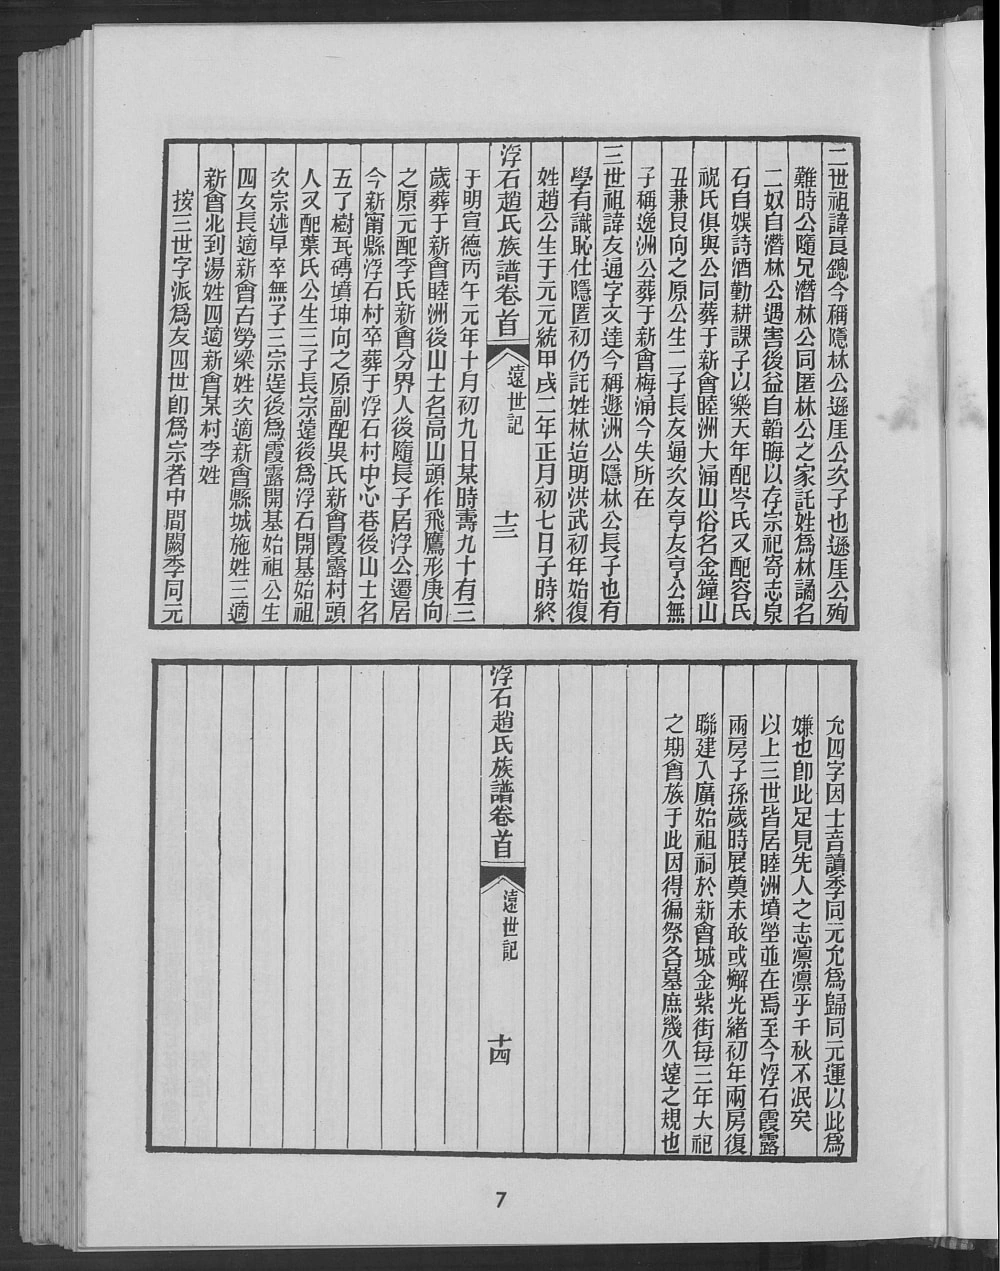 二世祖諱良鏓今稱隱林公遜厓公次子也遜厓公殉
難時公隨兄潛林公同匿林公之家託姓爲林譎名
二奴自潛林公遇害後益自韜晦以存宗祀寄志泉
石自娛詩酒勤耕課子以樂天年配岑氏又配容氏
祝氏俱與公同葬于新會睦洲大涌山俗名金鐘山
丑兼艮向之原公生二子長友通次友亨友亨公無
子稱逸洲公葬于新會梅涌今失所在
三世祖諱友通字文達今稱遯洲公隱林公長子也有
學有識恥仕隱匿初仍託姓林迨明洪武初年始復
姓趙公生于元元統甲戌二年正月初七日子時終
浮石趙氏族譜卷首
遠世記
十三
于明宣德丙午元年十月初九日某時壽九十有三
歲葬于新會睦洲後山土名高山頭作飛鷹形庚向
之原元配李氏新會分界人後隨長子居浮公遷居
今新甯縣浮石村卒葬于浮石村中心巷後山土名
五了樹瓦磚墳坤向之原副配吳氏新會霞露村頭
人又配葉氏公生三子長宗遠後爲浮石開基始祖
次宗述早卒無子三宗逞後爲霞露開基始祖公生
四女長適新會古勞梁姓次適新會縣城施姓三適
新會北到湯姓四適新會某村李姓
按三世字派爲友四世卽爲宗者中間闕季同元
允四字因土音讀季同元允爲歸同元運以此爲
嫌也卽此足見先人之志凛凛乎千秋不泯矣
以上三世皆居睦洲墳塋並在焉至今浮石霞露
兩房子孫歲時展奠未敢或懈光緒初年兩房復
聯建入廣始祖祠於新會城金紫街每三年大祀
之期會族于此因得徧祭各墓庶幾久遠之規也
浮石趙氏族譜卷首
遠世記
十四
7